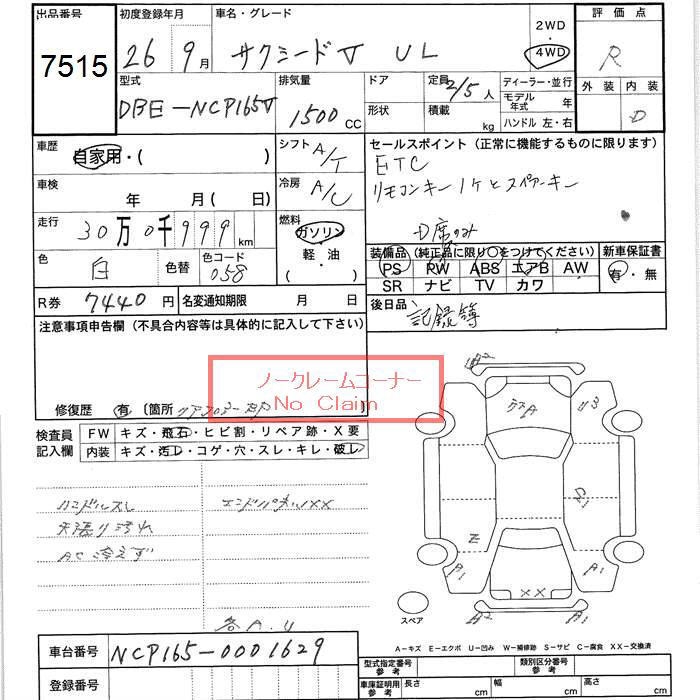 出品番号
7515
初度登録年月
26 9月
車名・グレード
サクシードV UL
2WD
4WD
評価点
R
型式
DBE-NCP165V
排気量
1500 CC
ドア
形状
定員 2/5 人
積載 kg
ディーラー・並行
モデル年式 年
ハンドル 左・右
外装 内装
D
車歴
自家用・( )
シフト A/T
セールスポイント(正常に機能するものに限ります)
ETC
リモコンキー1ケとスペアーキー
D席のみ
車検
年 月 (日)
冷房 A/C
走行
30万0千999km
燃料
ガソリン
軽・油
( )
色
白
色替
色コード
058
装備品(純正品に限り○をつけてください)
PS PW ABS エアB AW
SR ナビ TV カワ
新車保証書
有・無
R券 7440円
名変通知期限 月 日
後日品
記録簿
注意事項申告欄(不具合内容等は具体的に記入して下さい)
ノークレームコーナー
No Claim
修復歴 有 〔箇所
検査員
記入欄
FW キズ・飛石・ヒビ割・リペア跡・X要
内装 キズ・汚レ・コゲ・穴・スレ・キレ・破レ
ハンドルスレ
天張り汚れ
AC冷えず
エンドパネルXX
各A.U
A2
A
リ3
A1
A1
XX
A2
スペア
A-キズ E-エクボ U-凹み W-補修跡 S-サビ C-腐食 XX-交換済
車台番号 NCP165-0001629
登録番号
型式指定番号
参考
類別区分番号
参考
車庫証明用
参考
長さ cm
幅 cm
高さ cm